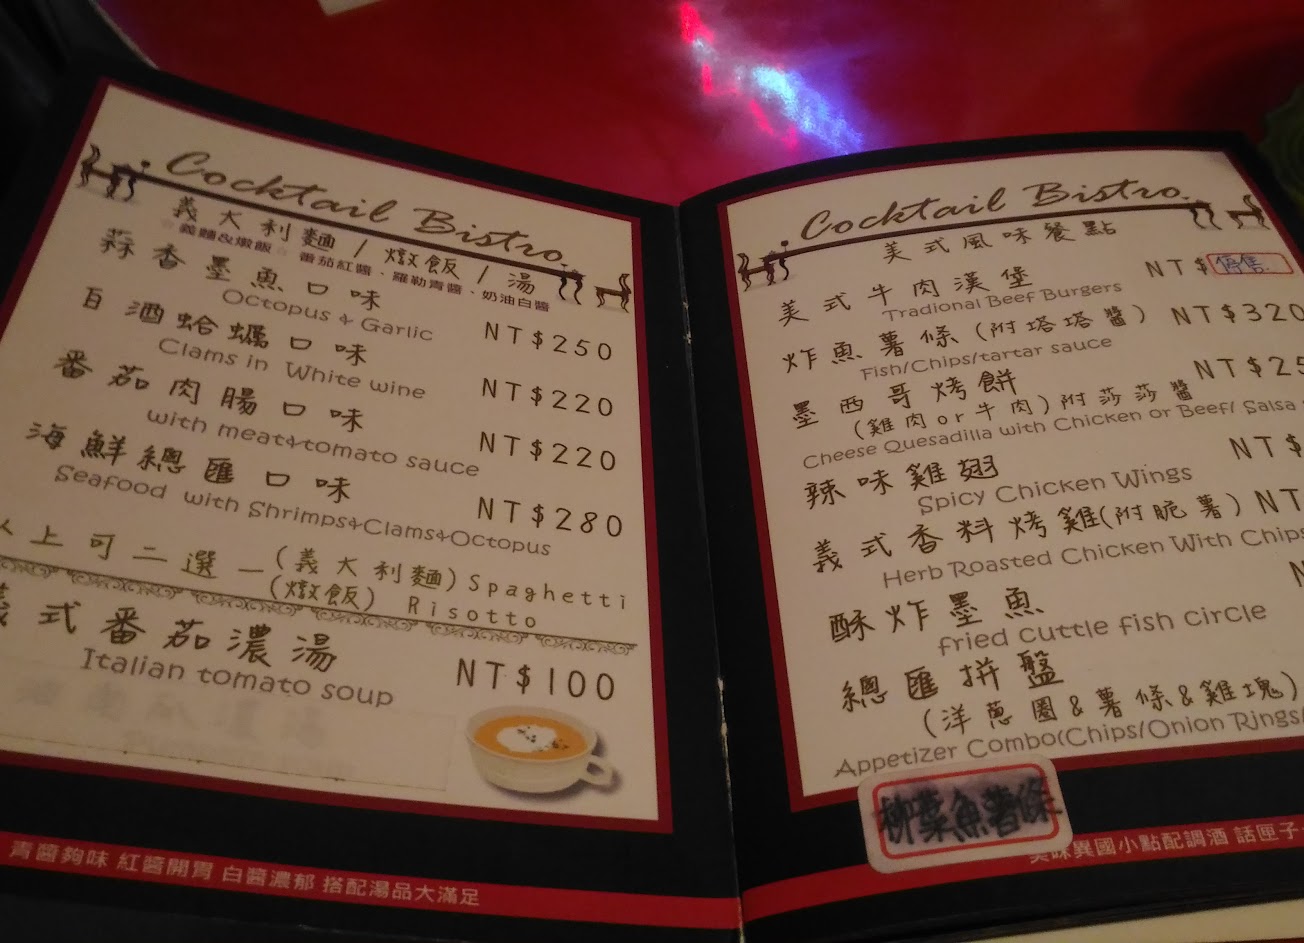 Cocktail Bistro
義大利麵/燉飯/湯
☆義麵&燉飯☆ 番茄紅醬、羅勒青醬、奶油白醬
蒜香墨魚口味
Octopus & Garlic
NT$250
白酒蛤蠣口味
Clams in White wine
NT$220
番茄肉腸口味
with meat&tomato sauce
NT$220
海鮮總匯口味
Seafood with Shrimps&Clams&Octopus
NT$280
以上可二選一(義大利麵)Spaghetti
(燉飯) Risotto
義式番茄濃湯
Italian tomato soup
NT$100
青醬夠味 紅醬開胃 白醬濃郁 搭配湯品大滿足
Cocktail Bistro
美式風味餐點
美式牛肉漢堡
NT$停售
Tradional Beef Burgers
炸魚薯條(附塔塔醬)
NT$320
Fish/Chips/tartar sauce
墨西哥烤餅
NT$25
(雞肉or牛肉)附莎莎醬
Cheese Quesadilla with Chicken or Beef/ Salsa
辣味雞翅
NT$
Spicy Chicken Wings
義式香料烤雞(附脆薯)
NT
Herb Roasted Chicken With Chips
酥炸墨魚
fried cuttle fish circle
總匯拼盤
(洋蔥圈&薯條&雞塊)
Appetizer Combo(Chips/Onion Rings/
柳葉魚薯條
美味異國小點配調酒 話匣子